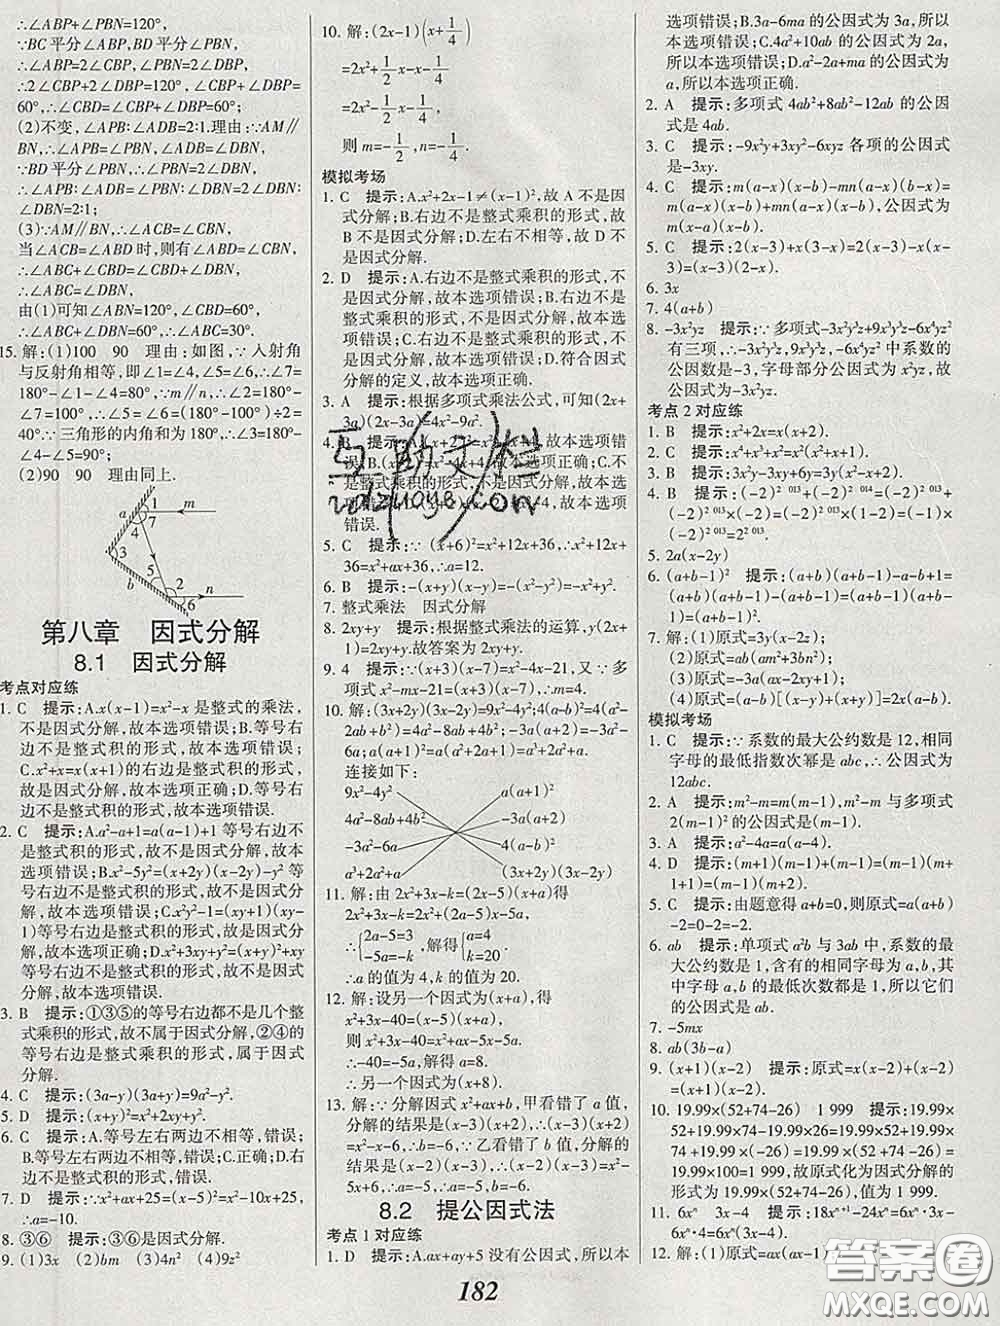 ∴∠ABP+∠PBN=120°,
∵BC平分∠ABP,BD平分∠PBN,
∴∠ABP=2∠CBP,∠PBN=2∠DBP,
∴2∠CBP+2∠DBP=120°,∠CBP+∠DBP=
60°,∴∠CBD=∠CBP+∠DBP=60°;
(2)不变,∠APB∶∠ADB=2∶1.理由:∵AM∥
BN,∴∠APB=∠PBN,∠ADB=∠DBN,
∵BD平分∠PBN,∴∠PBN=2∠DBN,
∴∠APB∶∠ADB=∠PBN∶∠DBN=2∠DBN∶
∠DBN=2∶1;
(3)∵AM∥BN,∴∠ACB=∠CBN,
当∠ACB=∠ABD时,则有∠ABD=∠CBN,
∴∠ABC+∠CBD=∠CBD+∠DBN,
∴∠ABC=∠DBN,
由(1)可知∠ABN=120°,∠CBD=60°,
∴∠ABC+∠DBN=60°,∴∠ABC=30°.
15.解:(1)100 90 理由:如图,∵入射角
与反射角相等,即∠1=∠4,∠5=∠6,∴∠7=
180°-∠1-∠4=80°,∵m∥n,∴∠2=180°-
∠7=100°,∴∠5=∠6=(180°-100°)÷2=
40°,∵三角形的内角和为180°,∴∠3=180°-
∠4-∠5=90°;
(2)90 90 理由同上.
a 1 m
7
4
3
5
2 n
b 6
第八章 因式分解
8.1 因式分解
考点对应练
1. C 提示:A.x(x-1)=x²-x是整式的乘法,
不是因式分解,故本选项错误;B.等号右
边不是整式积的形式,故本选项错误;
C.x²+x=x(x+1)的右边是整式积的形式,
是因式分解,故本选项正确;D.等号右边
不是整式积的形式,故本选项错误.
2. C 提示:A.a²-a+1=a(a-1)+1等号右边不
是整式积的形式,故不是因式分解,故本
选项错误;B.x²-5y²=(x+2y)(x-2y)-y²等
号右边不是整式积的形式,故不是因式分
解,故本选项错误;C.x²y²-1=(xy+1)(xy-
1)等号右边是整式积的形式,故是因式分
解,故本选项正确;D.x²+3xy+y²=(x+y)²+xy
等号右边不是整式积的形式,故不是因式
分解,故本选项错误.
3. B 提示:①③⑤的等号右边都不是几个整
式乘积的形式,故不属于因式分解,②④的
等号右边是整式乘积的形式,属于因式
分解.
4. C 提示:(3a-y)(3a+y)=9a²-y².
5. D 提示:(x+y)²=x²+2xy+y².
6. C 提示:A.等号左右两边不相等,错误;
B.等号左右两边不相等,错误;D.右边不
是整式积的形式,错误.
7. D 提示:∵x²+ax+25=(x-5)²=x²-10x+25,
∴a=-10.
8. ③⑥ 提示:③⑥是因式分解.
9. (1)3x (2)bm (3)4n² (4)9z²
10. 解:(2x-1)(x+1/4)
=2x²+1/2x-x-1/4
=2x²-1/2x-1/4,
则m=-1/2,n=-1/4.
模拟考场
1. C 提示:A.x²+2x-1≠(x-1)²,故A不是因
式分解;B.右边不是整式乘积的形式,故
B不是因式分解;D.左右不相等,故D不
是因式分解.
2. D 提示:A.右边不是整式乘积的形式,不
是因式分解,故本选项错误;B.右边不是
整式乘积的形式,不是因式分解,故本选
项错误;C.右边不是整式乘积的形式,不
是因式分解,故本选项错误;D.符合因式
分解的定义,故本选项正确.
3. A 提示:根据多项式乘法公式,可知(2x+
3a)(2x-3a)=4x²-9a².
是整式乘积的形式,不是因式分解,故本选项
错误.
5. C 提示:∵(x+6)²=x²+12x+36,∴x²+12x+
36=x²+ax+36,∴a=12.
6. B 提示:-(x+y)(x-y)=-(x²-y²)=-x²+y².
7. 整式乘法 因式分解
8. 2xy+y 提示:根据整式乘法的运算,y(2x+
1)=2xy+y.故答案为2xy+y.
9. 4 提示:∵(x+3)(x-7)=x²-4x-21,又∵多
项式x²-mx-21=(x+3)(x-7),∴m=4.
10. 解:(3x+2y)(3x-2y)=9x²-4y²;4(a-b)²=4(a²-
2ab+b²)=4a²-8ab+4b²;-3a(a+2)=-3a²-
6a;a(a+1)²=a(a²+2a+1)=a³+2a²+a.
连接如下:
9x²-4y² a(a+1)²
4a²-8ab+4b² -3a(a+2)
-3a²-6a 4(a-b)²
a³+2a²+a (3x+2y)(3x-2y)
11. 解:由2x²+3x-k=(2x-5)(x+a)得
2x²+3x-k=2x²+(2a-5)x-5a,
∴{2a-5=3 -5a=-k,解得{a=4 k=20.
∴a的值为4,k的值为20.
12. 解:设另一个因式为(x+a),得
x²+3x-40=(x-5)(x+a)
则x²+3x-40=x²+ax-5x-5a.
∴-40=-5a,解得a=8.
∴另一个因式为(x+8).
13. 解:∵分解因式x²+ax+b,甲看错了a值,
分解的结果是(x-3)(x+2),∴(x-3)(x+2)
=x²-x-6,∴b=-6,∵乙看错了b值,分解的
结果是(x-2)(x-3),∴(x-2)(x-3)=x²-
5x+6,∴a=-5,∴a=-5,b=-6.
8.2 提公因式法
考点1对应练
1. D 提示:A.ax+ay+5没有公因式,所以本
选项错误;B.3a-6ma的公因式为3a,所以
本选项错误;C.4a²+10ab的公因式为2a,
所以本选项错误;D.a²-2a+ma的公因式为
a,所以本选项正确.
2. A 提示:多项式4ab²+8ab²-12ab的公因
式是4ab.
3. C 提示:-9x²y+3xy²-6xyz各项的公因式
是-3xy.
4. C 提示:m(a-x)(x-b)-mn(a-x)(b-x)=
m(a-x)(x-b)+mn(a-x)(x-b),公因式为
m(x-a)(x-b).
5. C 提示:2(x-3)+x(3-x)=2(x-3)-
x(x-3)=(x-3)(2-x).
6. 3x
7. 4(a+b)
8. -3x²yz 提示:∵多项式-3x²y³z+9x³y³z-6x⁴yz²
有三项,∴-3x²y³z,9x³y³z,-6x⁴yz²中系数的
公因数是-3,字母部分公因式为x²yz,故
公因式为-3x²yz.
考点2对应练
1. B 提示:x²+2x=x(x+2).
2. C 提示:x²+x²+x²=x²(x²+x+1).
3. B 提示:3x²y-3xy+6y=3y(x²-x+2).
4. B 提示:(-2)² ⁰¹³+(-2)² ⁰¹⁴=(-2)² ⁰¹³+
(-2)² ⁰¹³×(-2)=(-2)² ⁰¹³×(1-2)=(-1)×
(-2)² ⁰¹³=2² ⁰¹³.
5. 2a(x-2y)
6. (a+b-1)² 提示:(a+b)(a+b-1)-a-b+1=
(a+b)(a+b-1)-(a+b-1)=(a+b-1)(a+
b-1)=(a+b-1)².
7. 解:(1)原式=3y(x-2z);
(2)原式=(m-2)(3a-1);
(3)原式=-3a(ax-2xy+1);
(4)原式=(x-a)[(x+a)-(a-x)]=2x(x-a).
模拟考场
1. C 提示:∵系数的最大公约数是12,相同
字母的最低指数次幂是abc,∴公因式为
12abc.
2. A 提示:m²-m=m(m-1),m²-m与多项式
2(m-1)²的公因式是(m-1).
3. A 提示:a²-4a=a(a-4).
4. D 提示:(m+1)(m-1)+(m-1)=(m-1)(m+
1+1)=(m-1)(m+2).
5. C 提示:由题意得a+b=0,则原式=a(a+b)
-2=0-2=-2.
6. ab 提示:单项式a²b与3ab中,系数的最
大公约数是1,含有的相同字母为a,b,其
中字母a,b的最低次数都是1,所以它们
的公因式是ab.
7. -5mx
8. ab(3b-a)
9. (x+1)(x-2) 提示:原式=x(x-2)+(x-2)
=(x+1)(x-2).
10. 19.99×(52+74-26) 1 999 提示:19.99×
52+19.99×74-19.99×26=19.99×(52+
74-26)=1 999,故原式化为因式分解的
形式为19.99×(52+74-26),值为1 999.
11. 6xⁿ 3x-4 提示:18xⁿ⁺¹-24xⁿ=6xⁿ·3x-
6xⁿ·4=6xⁿ(3x-4).
12. 解:(1)原式=ax(
182
互助文栏
答案圈
MXQE.COM